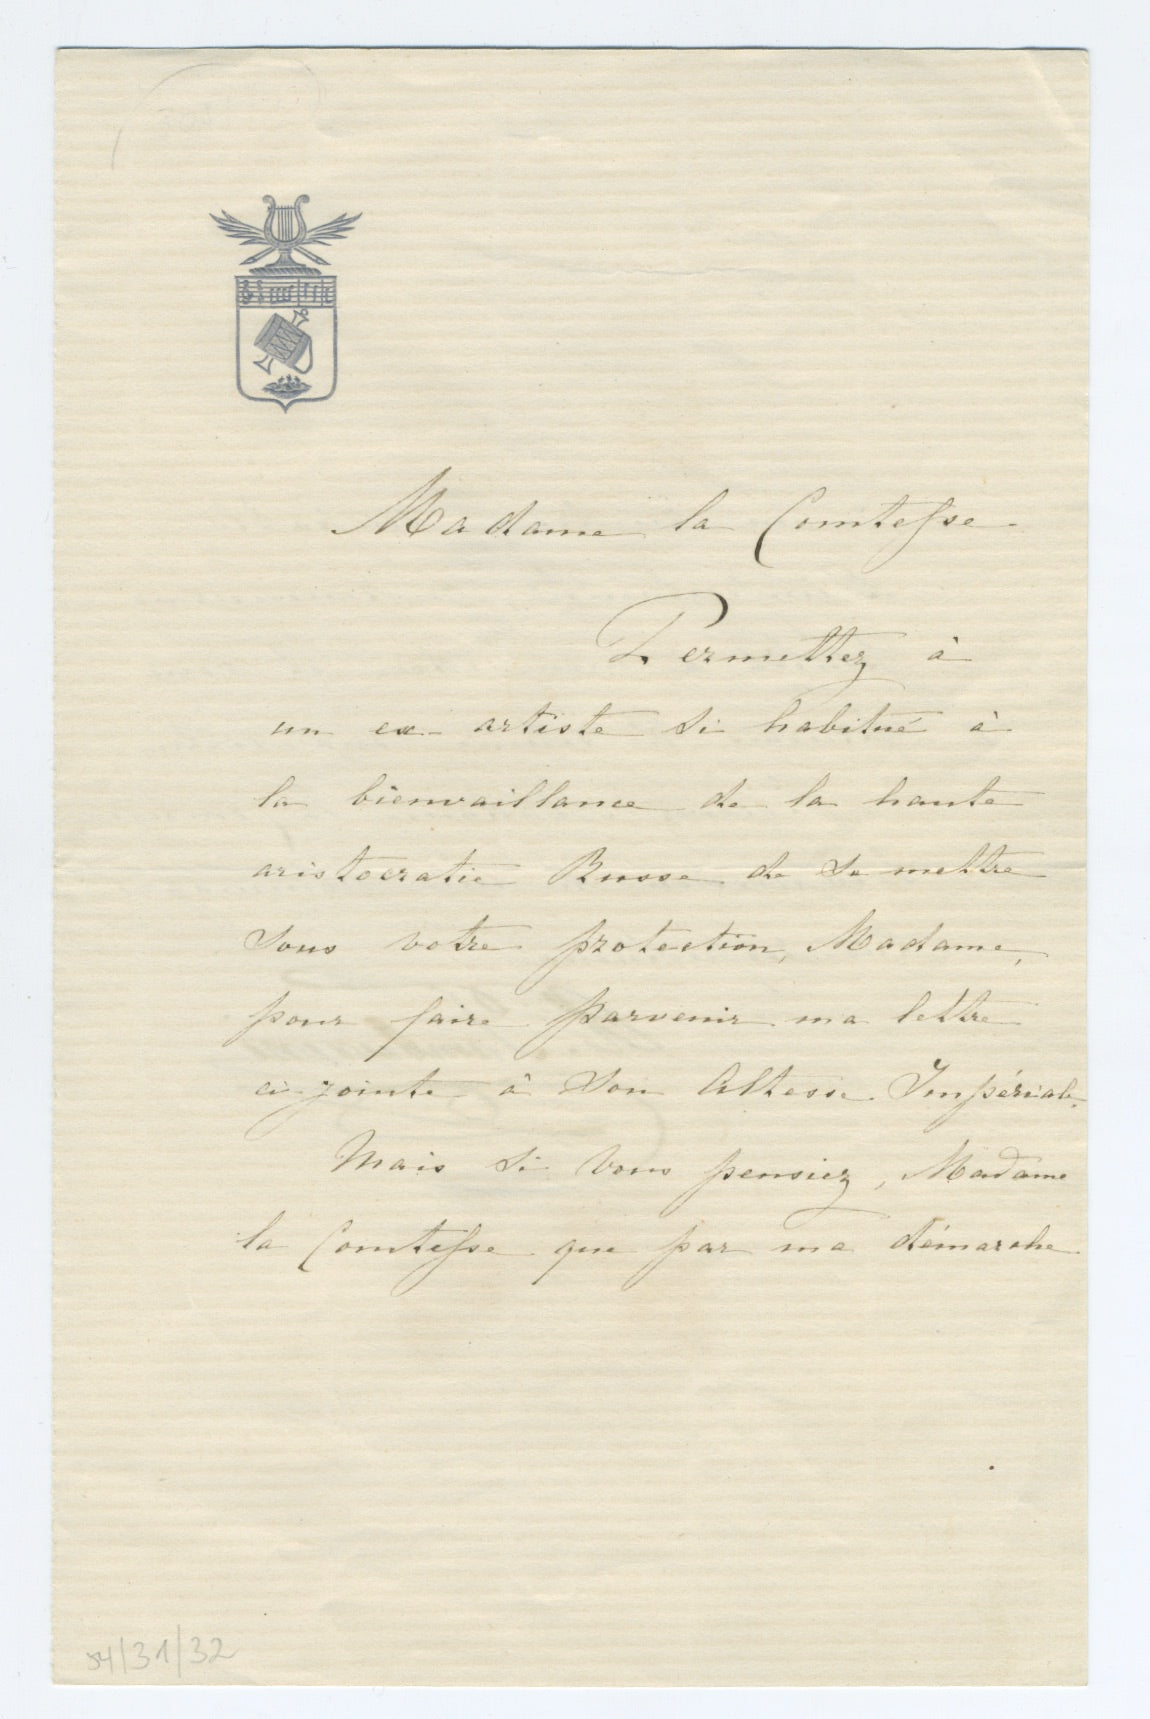 Madame la Comtesse.
Permettez à
un ex-artiste si habitué à
la bienvaillance de la haute
aristocratie Russe de se mettre
sous votre protection, Madame,
pour faire parvenir ma lettre
ci-jointe à Son Altesse Impériale.
Mais si vous pensiez, Madame
la Comtesse que par ma démarche
54/31/32